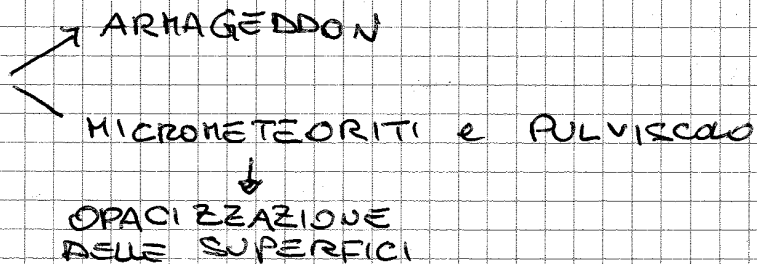 ARMAGEDDON
MICROMETEORITI e PULVISCOLO
OPACIZZAZIONE
DELLE SUPERFICI